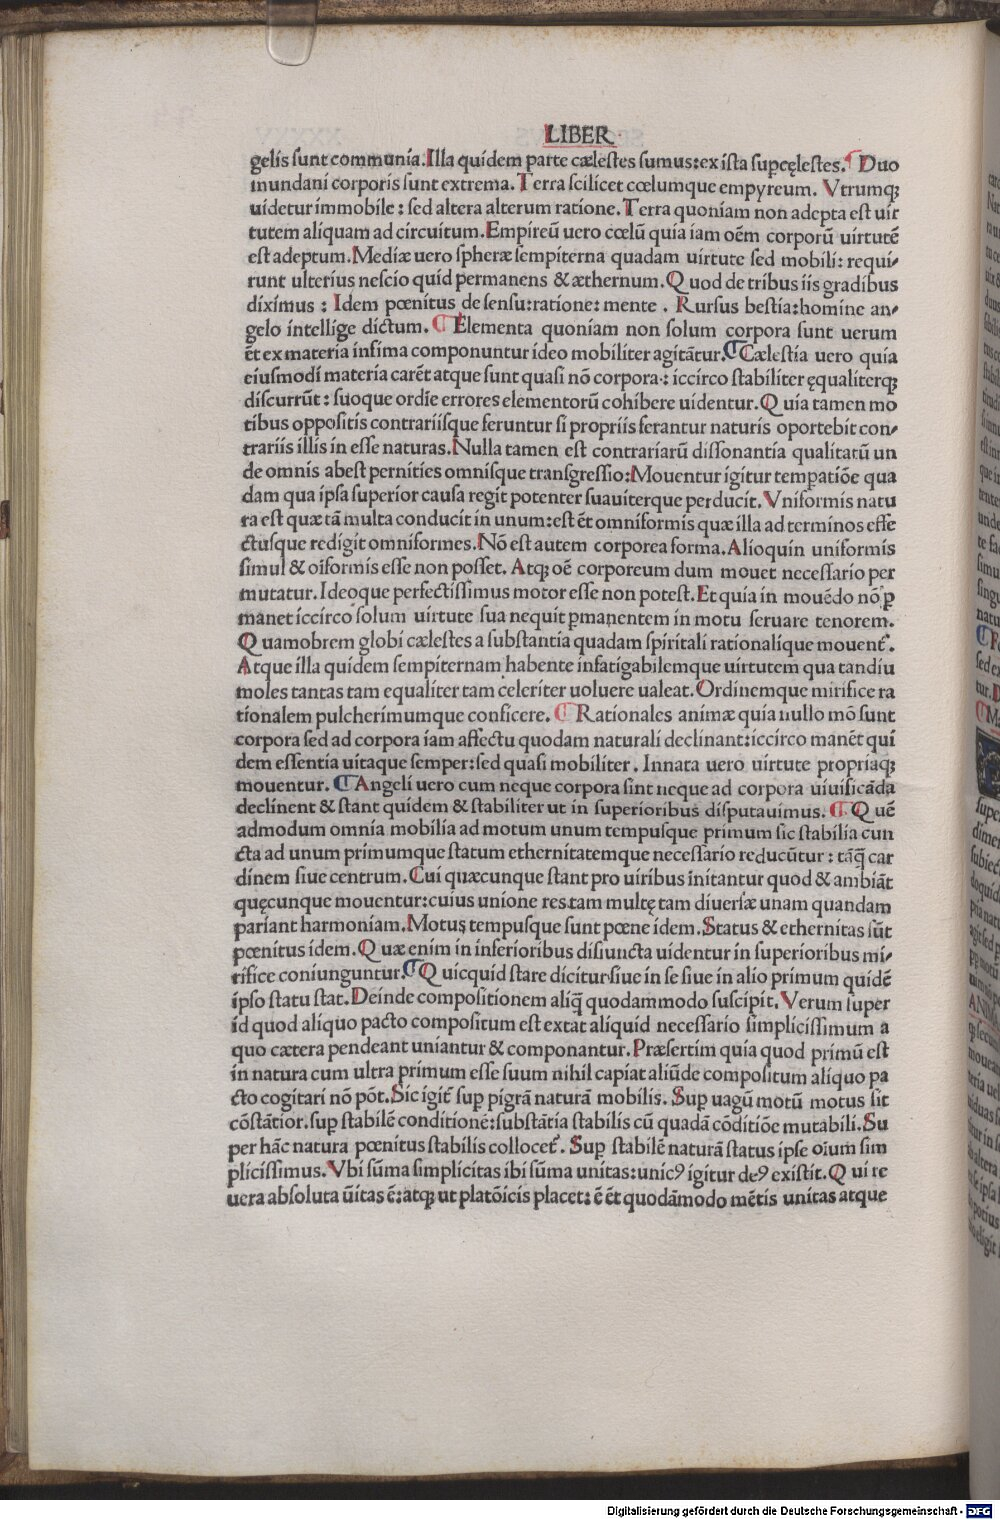 LIBER
gelis sunt communia. Illa quidem parte cælestes sumus: ex ista supcęlestes. ¶ Duo
mundani corporis sunt extrema. Terra scilicet cœlumque empyreum. Vtrumqꝫ
uidetur immobile : sed altera alterum ratione. Terra quoniam non adepta est uir
tutem aliquam ad circuitum. Empireū uero cœlū quia iam oēm corporū uirtutē
est adeptum. Mediæ uero spheræ sempiterna quadam uirtute sed mobili: requi-
runt ulterius nescio quid permanens & æthernum. Quod de tribus iis gradibus
diximus : Idem pœnitus de sensu: ratione: mente . Rursus bestia: homine an-
gelo intellige dictum. ¶ Elementa quoniam non solum corpora sunt uerum
ēt ex materia infima componuntur ideo mobiliter agitātur. ¶ Cælestia uero quia
eiusmodi materia carēt atque sunt quasi nō corpora : iccirco stabiliter ęqualiterqꝫ
discurrūt : suoque ordīe errores elementorū cohibere uidentur. Quia tamen mo
tibus oppositis contrariisque feruntur si propriis ferantur naturis oportebit con-
trariis illis in esse naturas. Nulla tamen est contrariarū dissonantia qualitatū un
de omnis abest pernities omnisque transgressio: Mouentur igitur temꝑatiōe qua
dam qua ipsa superior causa regit potenter suauiterque perducit. Vniformis natu
ra est quæ tā multa conducit in unum: est ēt omniformis quæ illa ad terminos effe
ctusque redigit omniformes. Nō est autem corporea forma. Alioquin uniformis
simul & oiformis esse non posset. Atqꝫ oē corporeum dum mouet necessario per
mutatur. Ideoque perfectissimus motor esse non potest. Et quia in mouēdo nō ꝑ
manet iccirco solum uirtute sua nequit ꝑmanentem in motu seruare tenorem.
Quamobrem globi cælestes a substantia quadam spiritali rationalique mouenť.
Atque illa quidem sempiternam habente infatigabilemque uirtutem qua tandiu
moles tantas tam equaliter tam celeriter uoluere ualeat. Ordinemque mirifice ra
tionalem pulcherimumque conficere. ¶ Rationales animæ quia nullo mō sunt
corpora sed ad corpora iam affectu quodam naturali declinant: iccirco manēt qui
dem essentia uitaque semper: sed quasi mobiliter. Innata uero uirtute propriaqꝫ
mouentur. ¶ Angeli uero cum neque corpora sint neque ad corpora uiuificāda
declinent & stant quidem & stabiliter ut in superioribus disputauimus. ¶ Quē
admodum omnia mobilia ad motum unum tempusque primum sic stabilia cun
cta ad unum primumque statum ethernitatemque necessario reducūtur : tāq̄ car
dinem siue centrum. Cui quæcunque stant pro uiribus īnitantur quod & ambiāt
quęcunque mouentur: cuius unione res tam multę tam diuersæ unam quandam
pariant harmoniam. Motus tempusque sunt pœne idem. Status & ethernitas sūt
pœnitus idem. Quæ enim in inferioribus disiuncta uidentur in superioribus mi-
rifice coniunguntur. ¶ Quicquid stare dicitur siue in se siue in alio primum quidē
ipso statu stat. Deinde compositionem aliq̄ quodammodo suscipit. Verum super
id quod aliquo pacto compositum est extat aliquid necessario simplicissimum a
quo cætera pendeant uniantur & componantur. Præsertim quia quod primū est
in natura cum ultra primum esse suum nihil capiat aliūde compositum aliquo pa
cto cogitari nō pōt. Sic igiť suꝑ pigrā naturā mobilis. Suꝑ uagū motū motus sit
cōstātior. suꝑ stabilē conditionē: substātia stabilis cū quadā cōditiōe mutabili. Su
per hāc natura pœnitus stabilis colloceť. Suꝑ stabilē naturā status ipse oium sim
plicissimus. Vbi sūma simplicitas ibi sūma unitas: unicꝰ igitur deꝰ existit. Qui re
uera absoluta ūitas ē: atqꝫ ut platōicis placet: ē ēt quodāmodo mētis unitas atque
Digitalisierung gefördert durch die Deutsche Forschungsgemeinschaft - DFG